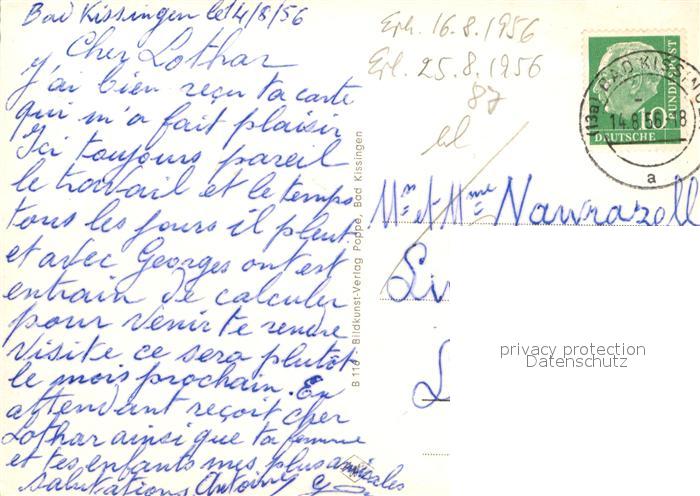 Bad Kissingen le 14/8/56
Cher Lothar
J'ai bien reçu ta carte
qui m'a fait plaisir
Ici toujours pareil
le travail et le temps
tous les jours il pleut.
et avec Georges ont est
entrain de calculer
pour venir te rendre
visite ce sera plutôt
le mois prochain. En
attendant reçoit cher
Lothar ainsi que ta femme
et tes enfants mes plus amicales
salutations Antoine
Erh. 16.8.1956
Erl. 25.8.1956
87
B 116 - Bildkunst-Verlag Poppe, Bad Kissingen
(13a) BAD KISSING
14.8.56-18
a
DEUTSCHE
BUNDESPOST
10
Mr et Mme Nawrazoll
privacy protection
Datenschutz